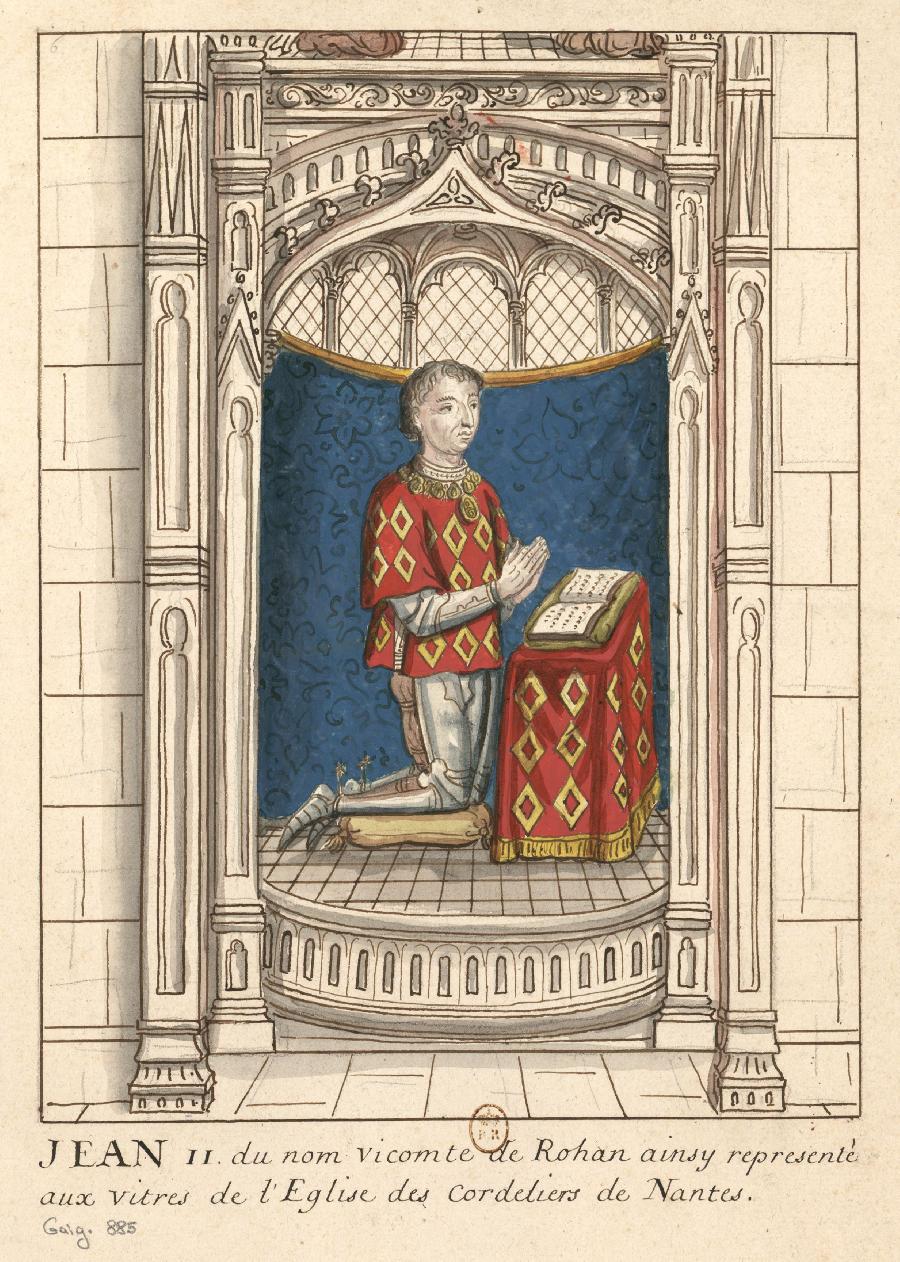 6
JEAN II. du nom vicomte de Rohan ainsy representé
aux vitres de l'Eglise des Cordeliers de Nantes.
Gaig. 885